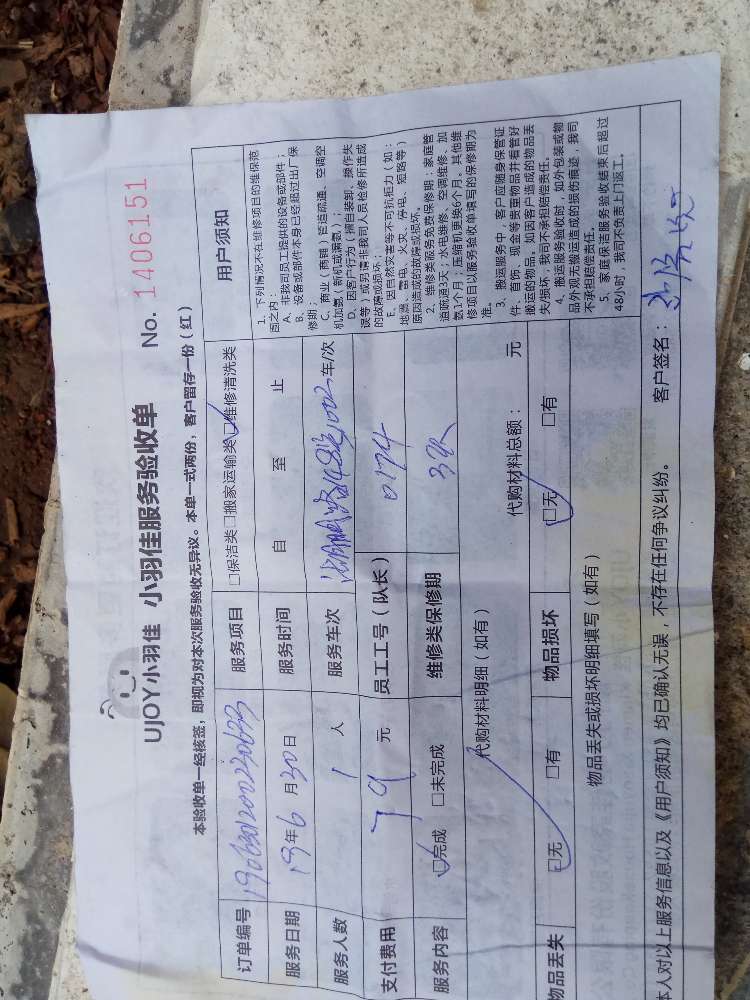 UJOY小羽佳 小羽佳服务验收单 No. 1406151
本验收单一经核签，即视为对本次服务验收无异议。本单一式两份，客户留存一份（红）
订单编号
服务项目 □保洁类□搬家运输类□维修清洗类
服务日期 19年6月30日
服务时间 自 至 止
服务人数 1 人
服务车次 483 1002 车/次
支付费用 79 元
员工工号（队长） 0174
服务内容 □完成 □未完成
维修类保修期 3天
代购材料明细（如有） 代购材料总额： 元
物品丢失 □无 □有
物品损坏 □无 □有
物品丢失或损坏明细填写（如有）
用户须知
1、下列情况不在维修项目的维保范
围之内：
A、非我司员工提供的设备或部件；
B、设备或部件本身已经超过出厂保
修期；
C、商业（商铺）管道疏通、空调空
机加氨（新机或满氨）；
D、因客户行为（擅自装卸、操作失
误等）或另请非我司人员检修所造成
的故障或损坏；
E、因自然灾害等不可抗拒力（如：
地震、雷电、火灾、停电、短路等）
原因造成的故障或损坏。
2、维修类服务免费保修期：家庭管
道疏通3天；水电维修、空调维修、加
氨1个月；压缩机更换6个月。其他维
修项目以服务验收单填写的保修期为
准。
3、搬运服务中，客户应随身保管证
件、首饰、现金等贵重物品并看管好
搬运的物品，如因客户造成的物品丢
失/损坏，我司不承担赔偿责任。
4、搬运服务验收时，如外包装或物
品外观无搬运造成的损伤痕迹，我司
不承担赔偿责任。
5、家庭保洁服务验收结束后超过
48小时，我司不负责上门返工。
本人对以上服务信息以及《用户须知》均已确认无误，不存在任何争议纠纷。 客户签名：